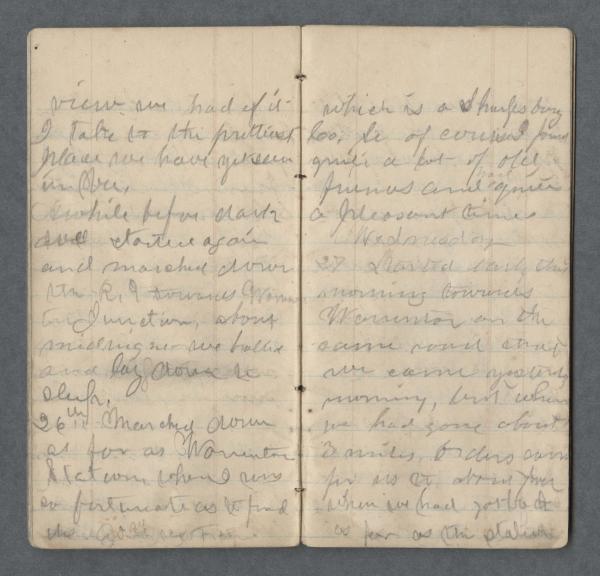 view we had of it
I take to the prettiest
place we have yet seen
in Va.
Awhile before dark
started again
and marched down
the R. towards Warren
ton Junction, about
midnight we halted
and lay down to
sleep.
26th Marched down
as far as Warrenton
Station, where I was
so fortunate as to find
the
which is a
Co. he of course found
quite a lot of old
friends and had quite
a pleasant times
Wednesday
27 Started early this
morning towards
Warrenton on the
same road that
we came yesterday
morning, but when
we had gone about
3 miles, orders came
for us to about face
when we had got back
as far as the station